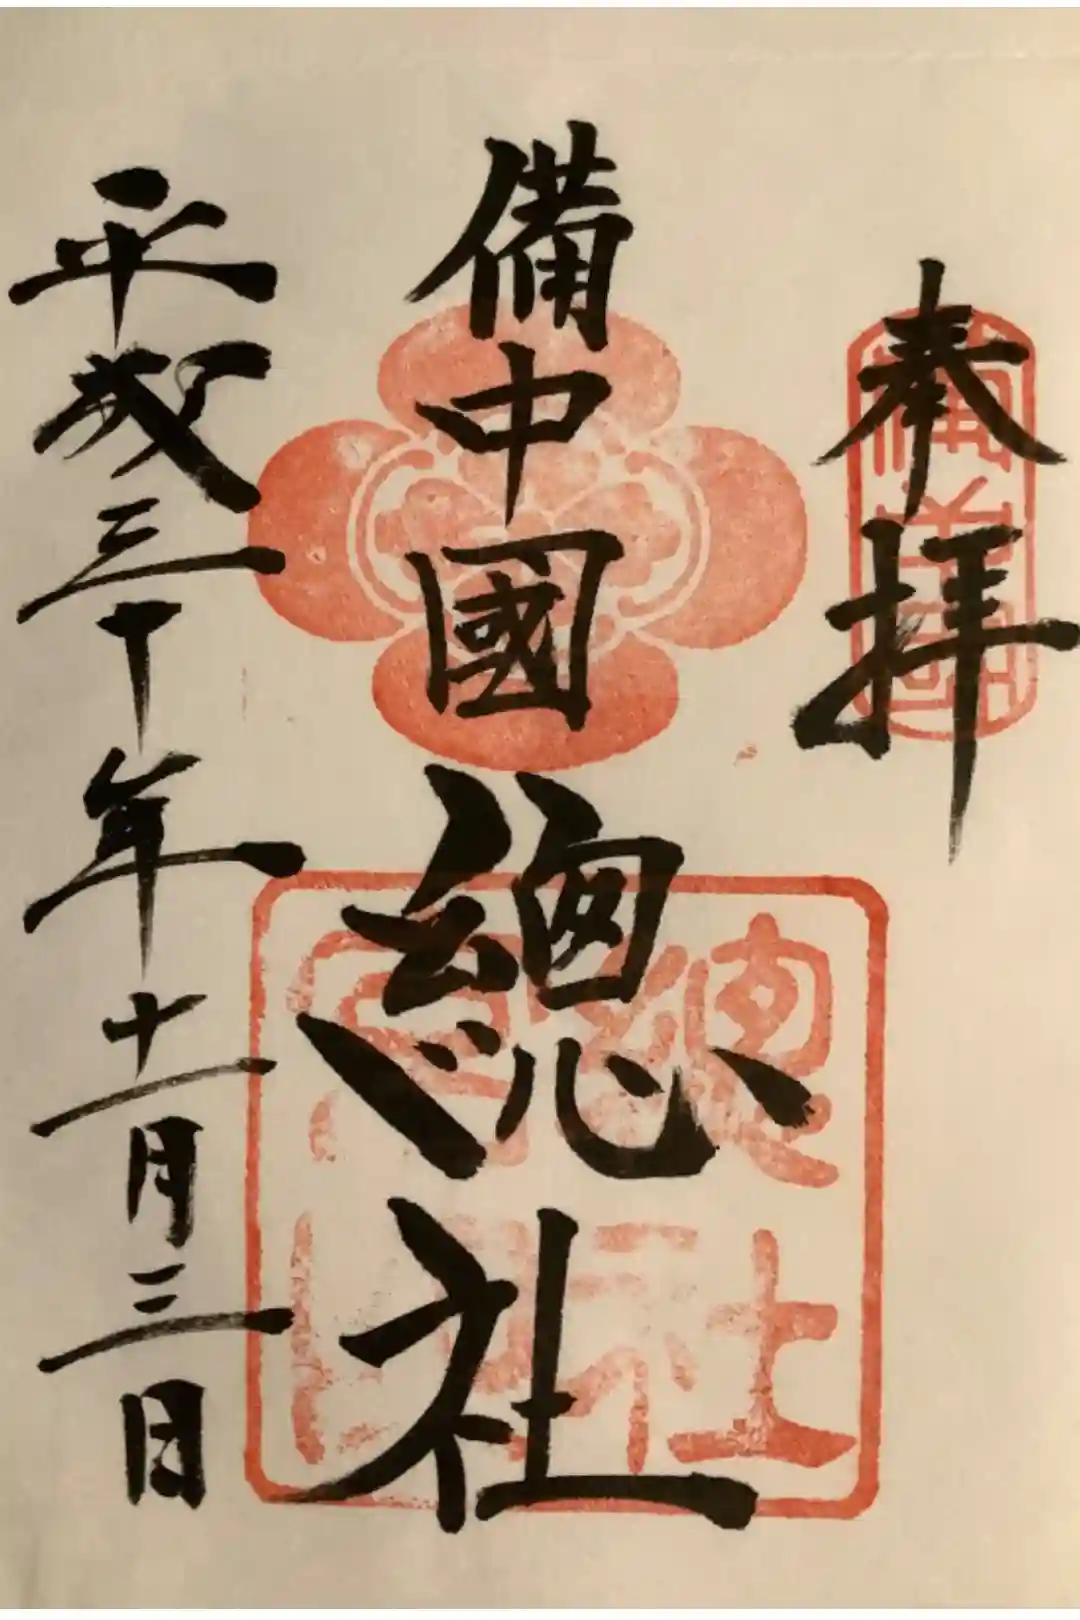 奉拝
備中國
總社
平成三十年十一月三日
總社